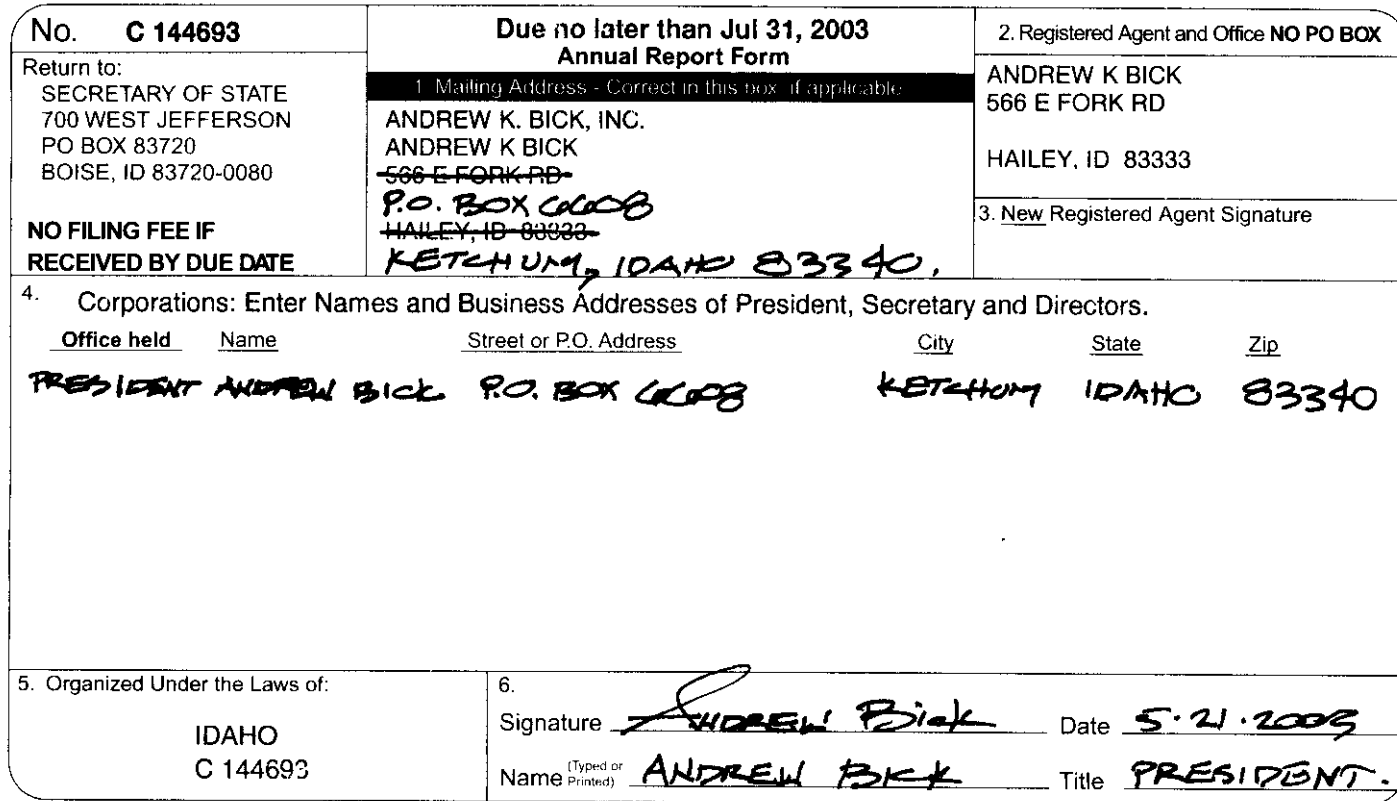 No. C 144693
Return to:
SECRETARY OF STATE
700 WEST JEFFERSON
PO BOX 83720
BOISE, ID 83720-0080
NO FILING FEE IF
RECEIVED BY DUE DATE
Due no later than Jul 31, 2003
Annual Report Form
1. Mailing Address - Correct in this box if applicable
ANDREW K. BICK, INC.
ANDREW K BICK
566 E FORK RD
P.O. BOX 6608
HAILEY, ID 83333
KETCHUM, IDAHO 83340.
2. Registered Agent and Office NO PO BOX
ANDREW K BICK
566 E FORK RD
HAILEY, ID 83333
3. New Registered Agent Signature
4. Corporations: Enter Names and Business Addresses of President, Secretary and Directors.
Office held Name Street or P.O. Address City State Zip
PRESIDENT ANDREW BICK P.O. BOX 6608 KETCHUM IDAHO 83340
5. Organized Under the Laws of:
IDAHO
C 144693
6.
Signature ANDREW Bick Date 5.21.2003
Name (Typed or Printed) ANDREW BICK Title PRESIDENT.